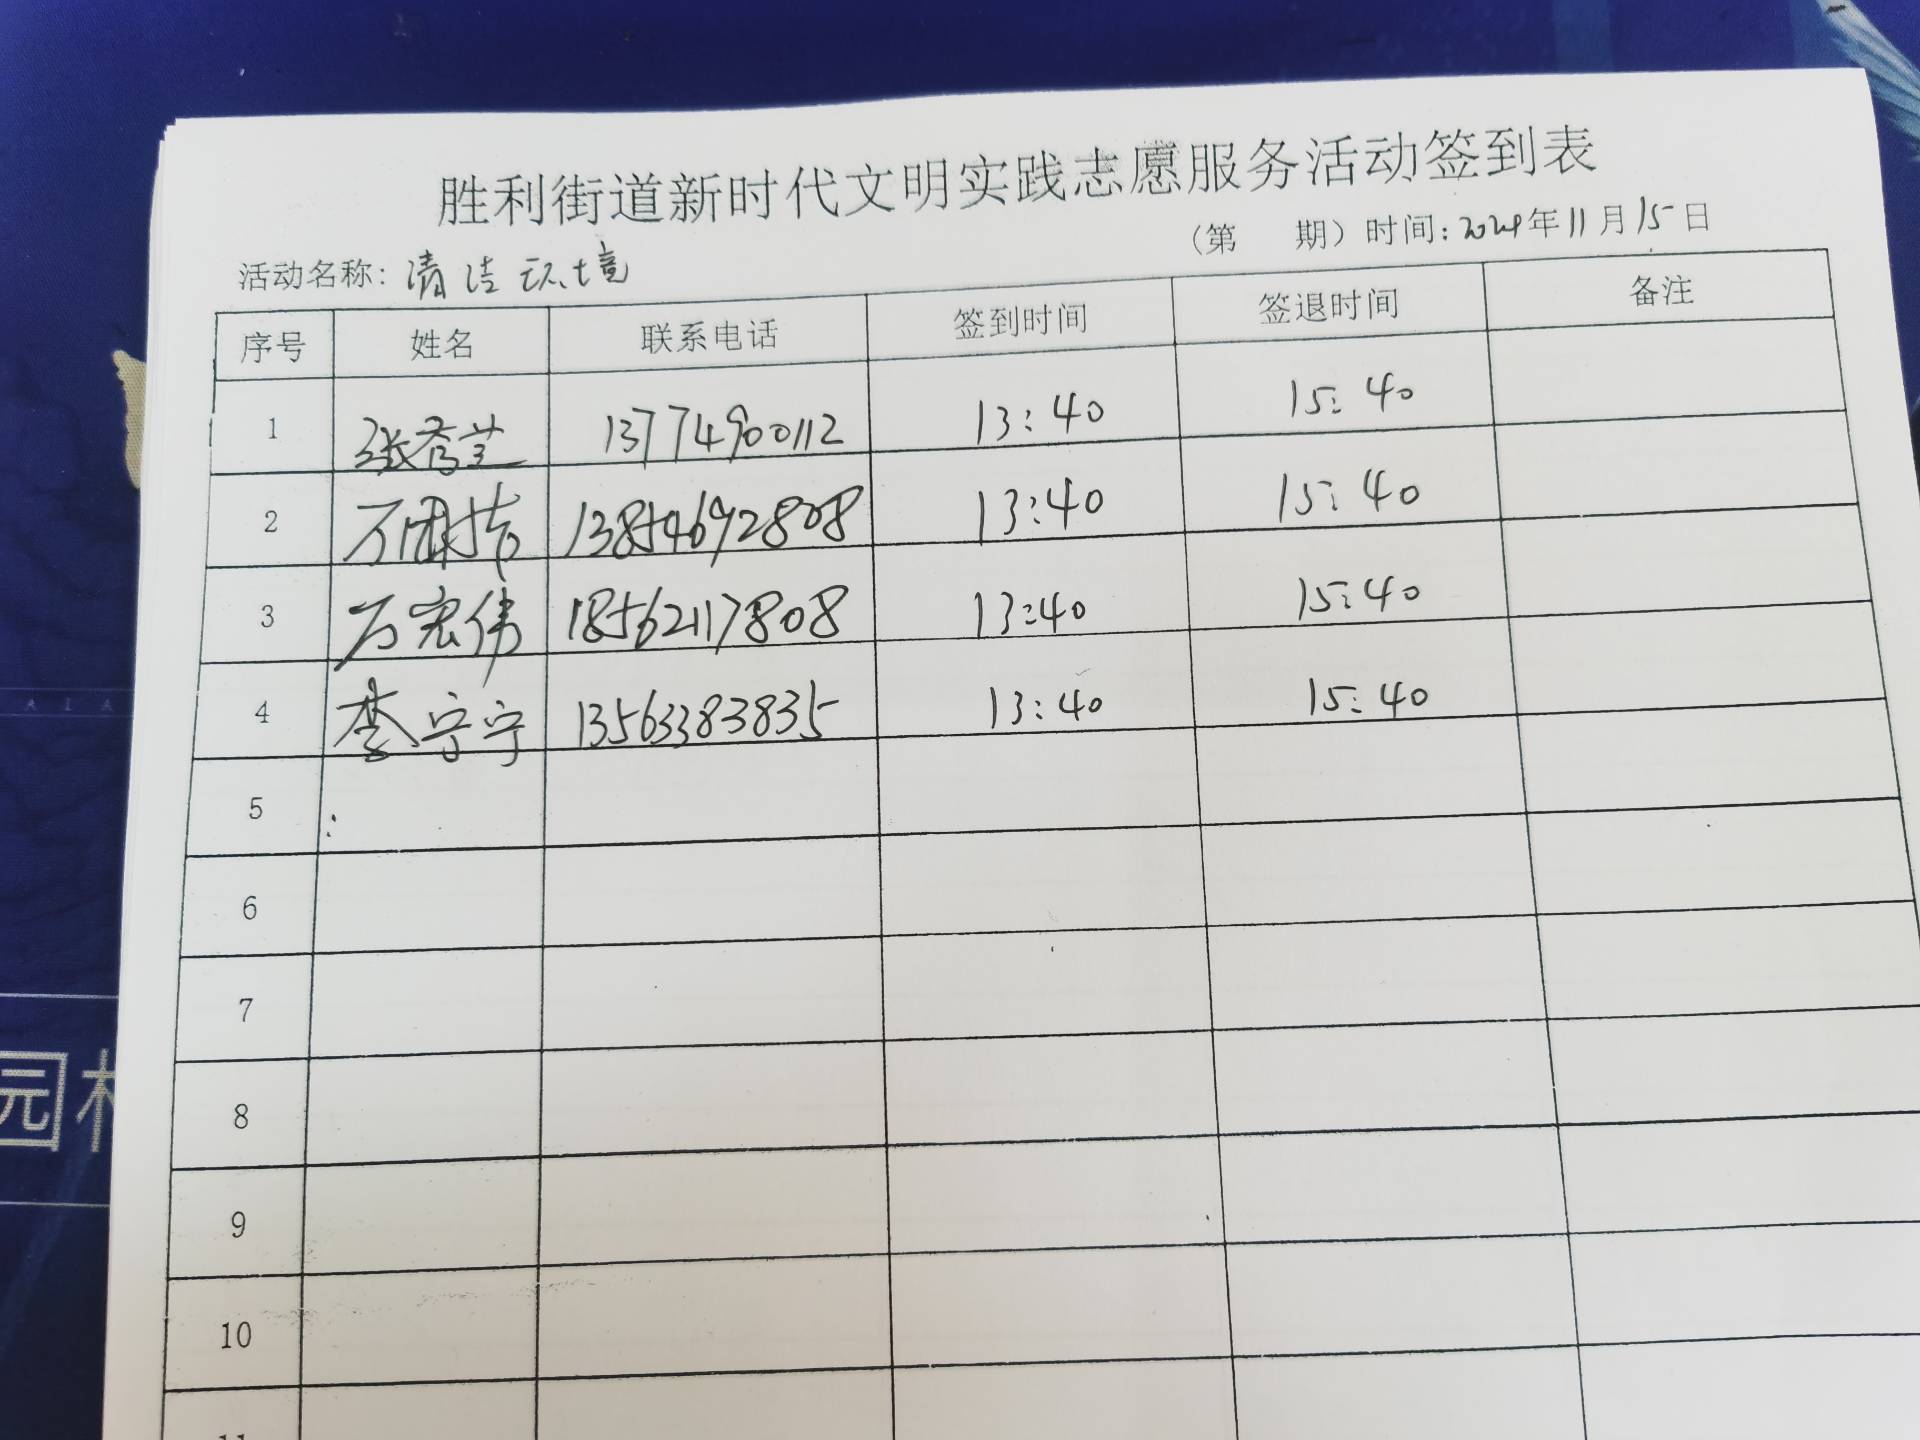 胜利街道新时代文明实践志愿服务活动签到表
(第 期) 时间: 2024年11月15日
活动名称: 清洁环境
序号 姓名 联系电话 签到时间 签退时间 备注
1 张秀兰 13774900112 13:40 15:40
2 万 13854692808 13:40 15:40
3 万宏伟 18562117808 13:40 15:40
4 李宁宁 13563383835 13:40 15:40
5
6
7
8
9
10
11
园林